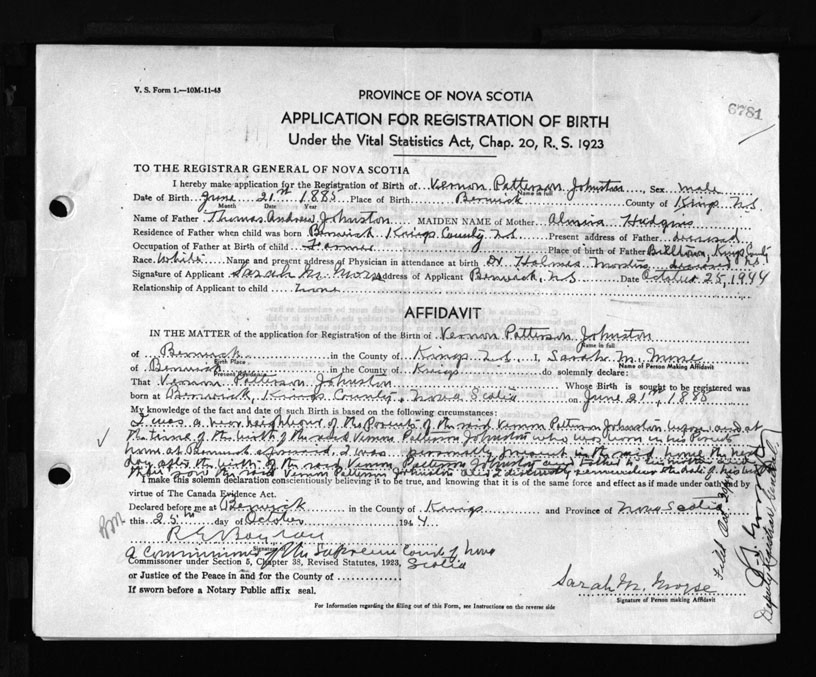 V. S. Form 1.—10M-11-43
6781
PROVINCE OF NOVA SCOTIA
APPLICATION FOR REGISTRATION OF BIRTH
Under the Vital Statistics Act, Chap. 20, R. S. 1923
TO THE REGISTRAR GENERAL OF NOVA SCOTIA
I hereby make application for the Registration of Birth of Vernon Patterson Johnston, Sex male
Name in full
Date of Birth June 21st 1885 Place of Birth Berwick County of Kings N.S
Month Date Year
Name of Father Thomas Andrew Johnston MAIDEN NAME of Mother Almira Hudgins
Residence of Father when child was born Berwick Kings County N.S Present address of Father deceased
Occupation of Father at Birth of child Farmer Place of birth of Father Billtown, Kings County N.S
Race White Name and present address of Physician in attendance at birth Dr Holmes deceased
Signature of Applicant Sarah M. Morse Address of Applicant Berwick, N.S Date October 25, 1944
Relationship of Applicant to child none
AFFIDAVIT
IN THE MATTER of the application for Registration of the Birth of Vernon Patterson Johnston
Name in full
of Berwick in the County of Kings N.S. I, Sarah M. Morse
Birth Place Name of Person Making Affidavit
of Berwick in the County of Kings do solemnly declare:
Present Residence
That Vernon Patterson Johnston Whose Birth is sought to be registered was
born at Berwick, Kings County, Nova Scotia on June 21st, 1885
My knowledge of the fact and date of such Birth is based on the following circumstances:
I was a near neighbour of the Parents of the said Vernon Patterson Johnston before and at
the time of the birth of the said Vernon Patterson Johnston who was born in his Parents
home at Berwick aforesaid. I was personally present in the said home the next
day after the birth of the said Vernon Patterson Johnston and
the said Vernon Patterson Johnston and I distinctly remember the date of his birth
I make this solemn declaration conscientiously believing it to be true, and knowing that it is of the same force and effect as if made under oath and by
virtue of The Canada Evidence Act.
Declared before me at Berwick in the County of Kings and Province of Nova Scotia
this 25th day of October 1944
Signature
A Commissioner of the Supreme Court of Nova Scotia
Commissioner under Section 5, Chapter 38, Revised Statutes, 1923,
or Justice of the Peace in and for the County of
If sworn before a Notary Public affix seal.
Sarah M. Morse
Signature of Person making Affidavit
For Information regarding the filling out of this Form, see Instructions on the reverse side
Filed
Deputy Registrar General